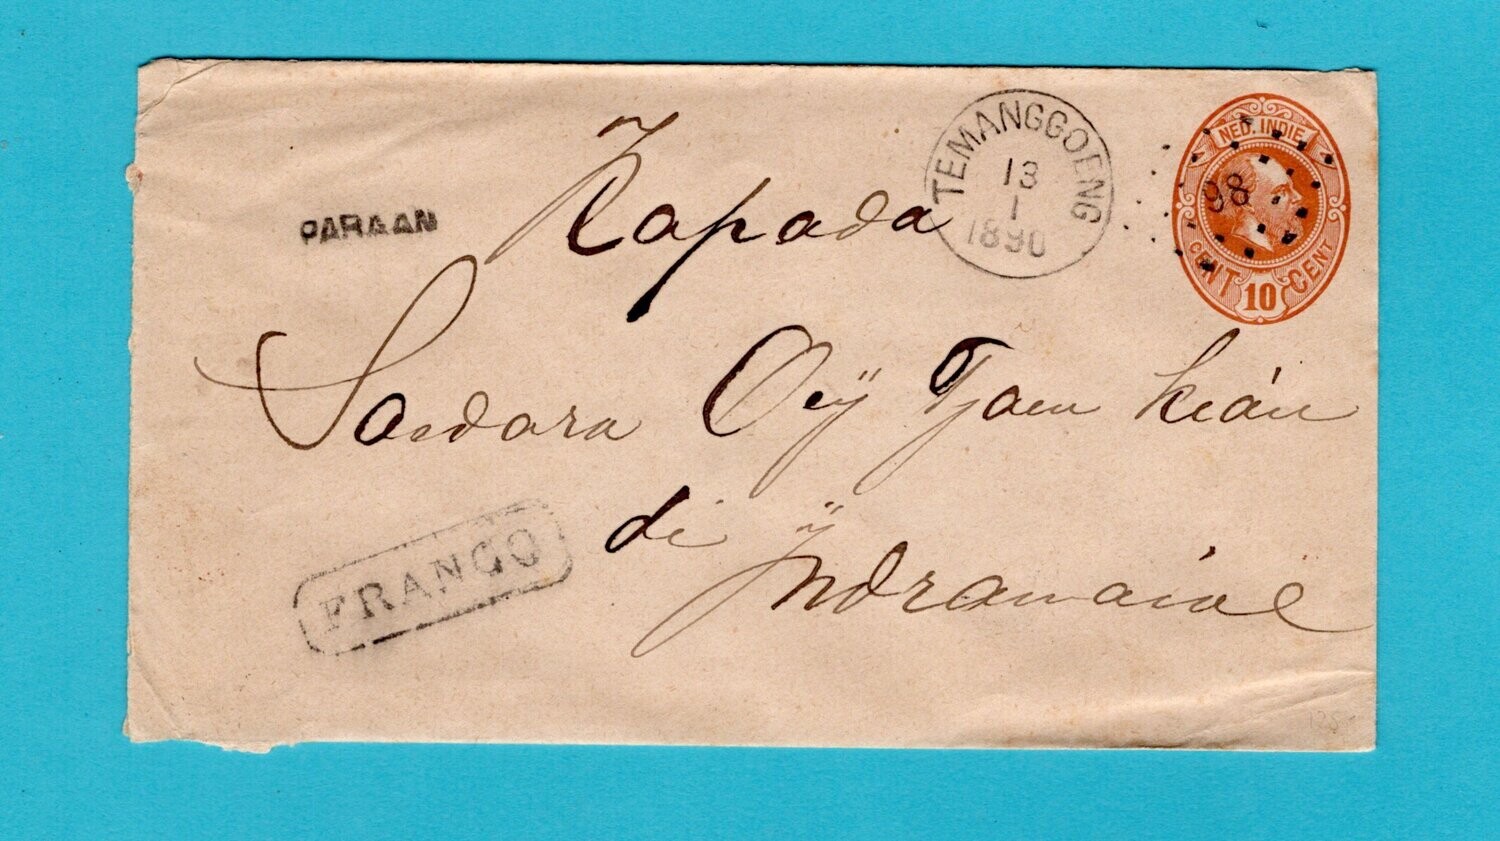 TEMANGGOENG
13
1
1890
NED. INDIE
98
CENT 10 CENT
PARAAN
Kapada
Soedara Oeij Tjoen Kián
di Indramaioe
FRANCO